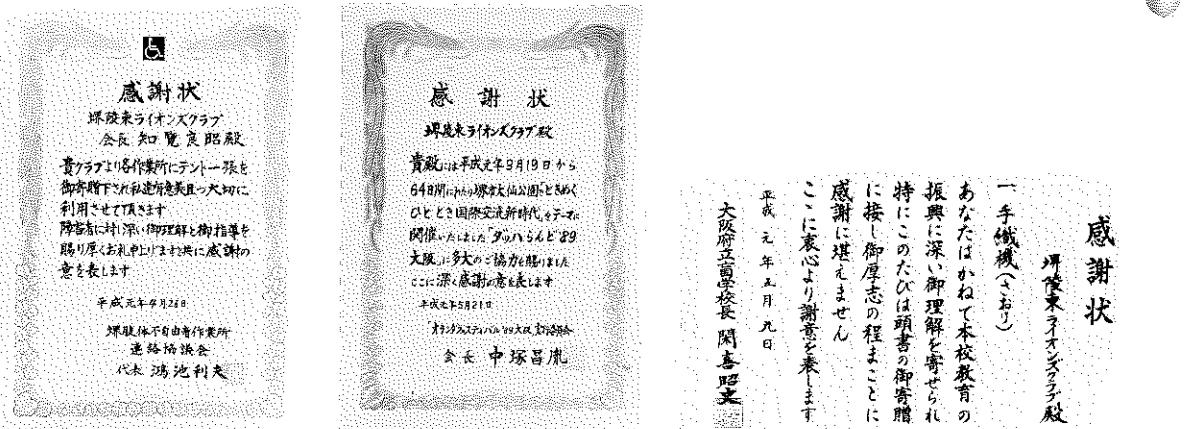 感謝状
堺陵東ライオンズクラブ
会長 知覧良昭殿
貴クラブより各作業所にテント一張を
御寄贈下され私達有意義且つ大切に
利用させて頂きます
障害者に対し深い御理解と御指導を
賜り厚くお礼申上げますと共に感謝の
意を表します
平成元年4月26日
堺肢体不自由者作業所
連絡協議会
代表 鴻池利夫
感謝状
堺陵東ライオンズクラブ殿
貴殿には平成元年3月19日から
64日間にわたり堺市大仙公園で「ときめく
ひととき国際交流新時代」をテーマに
開催いたしました「ダッハらんど'89
大阪」に多大のご協力を賜りました
ここに深く感謝の意を表します
平成元年5月21日
オランダフェスティバル'89大阪実行委員会
会長 中塚昌胤
感謝状
堺陵東ライオンズクラブ殿
一 手織機(さおり)
あなたはかねて本校教育の
振興に深い御理解を寄せられ
特にこのたびは頭書の御寄贈
に接し御厚志の程まことに
感謝に堪えません
ここに衷心より謝意を表します
平成元年五月九日
大阪府立盲学校長 関喜昭